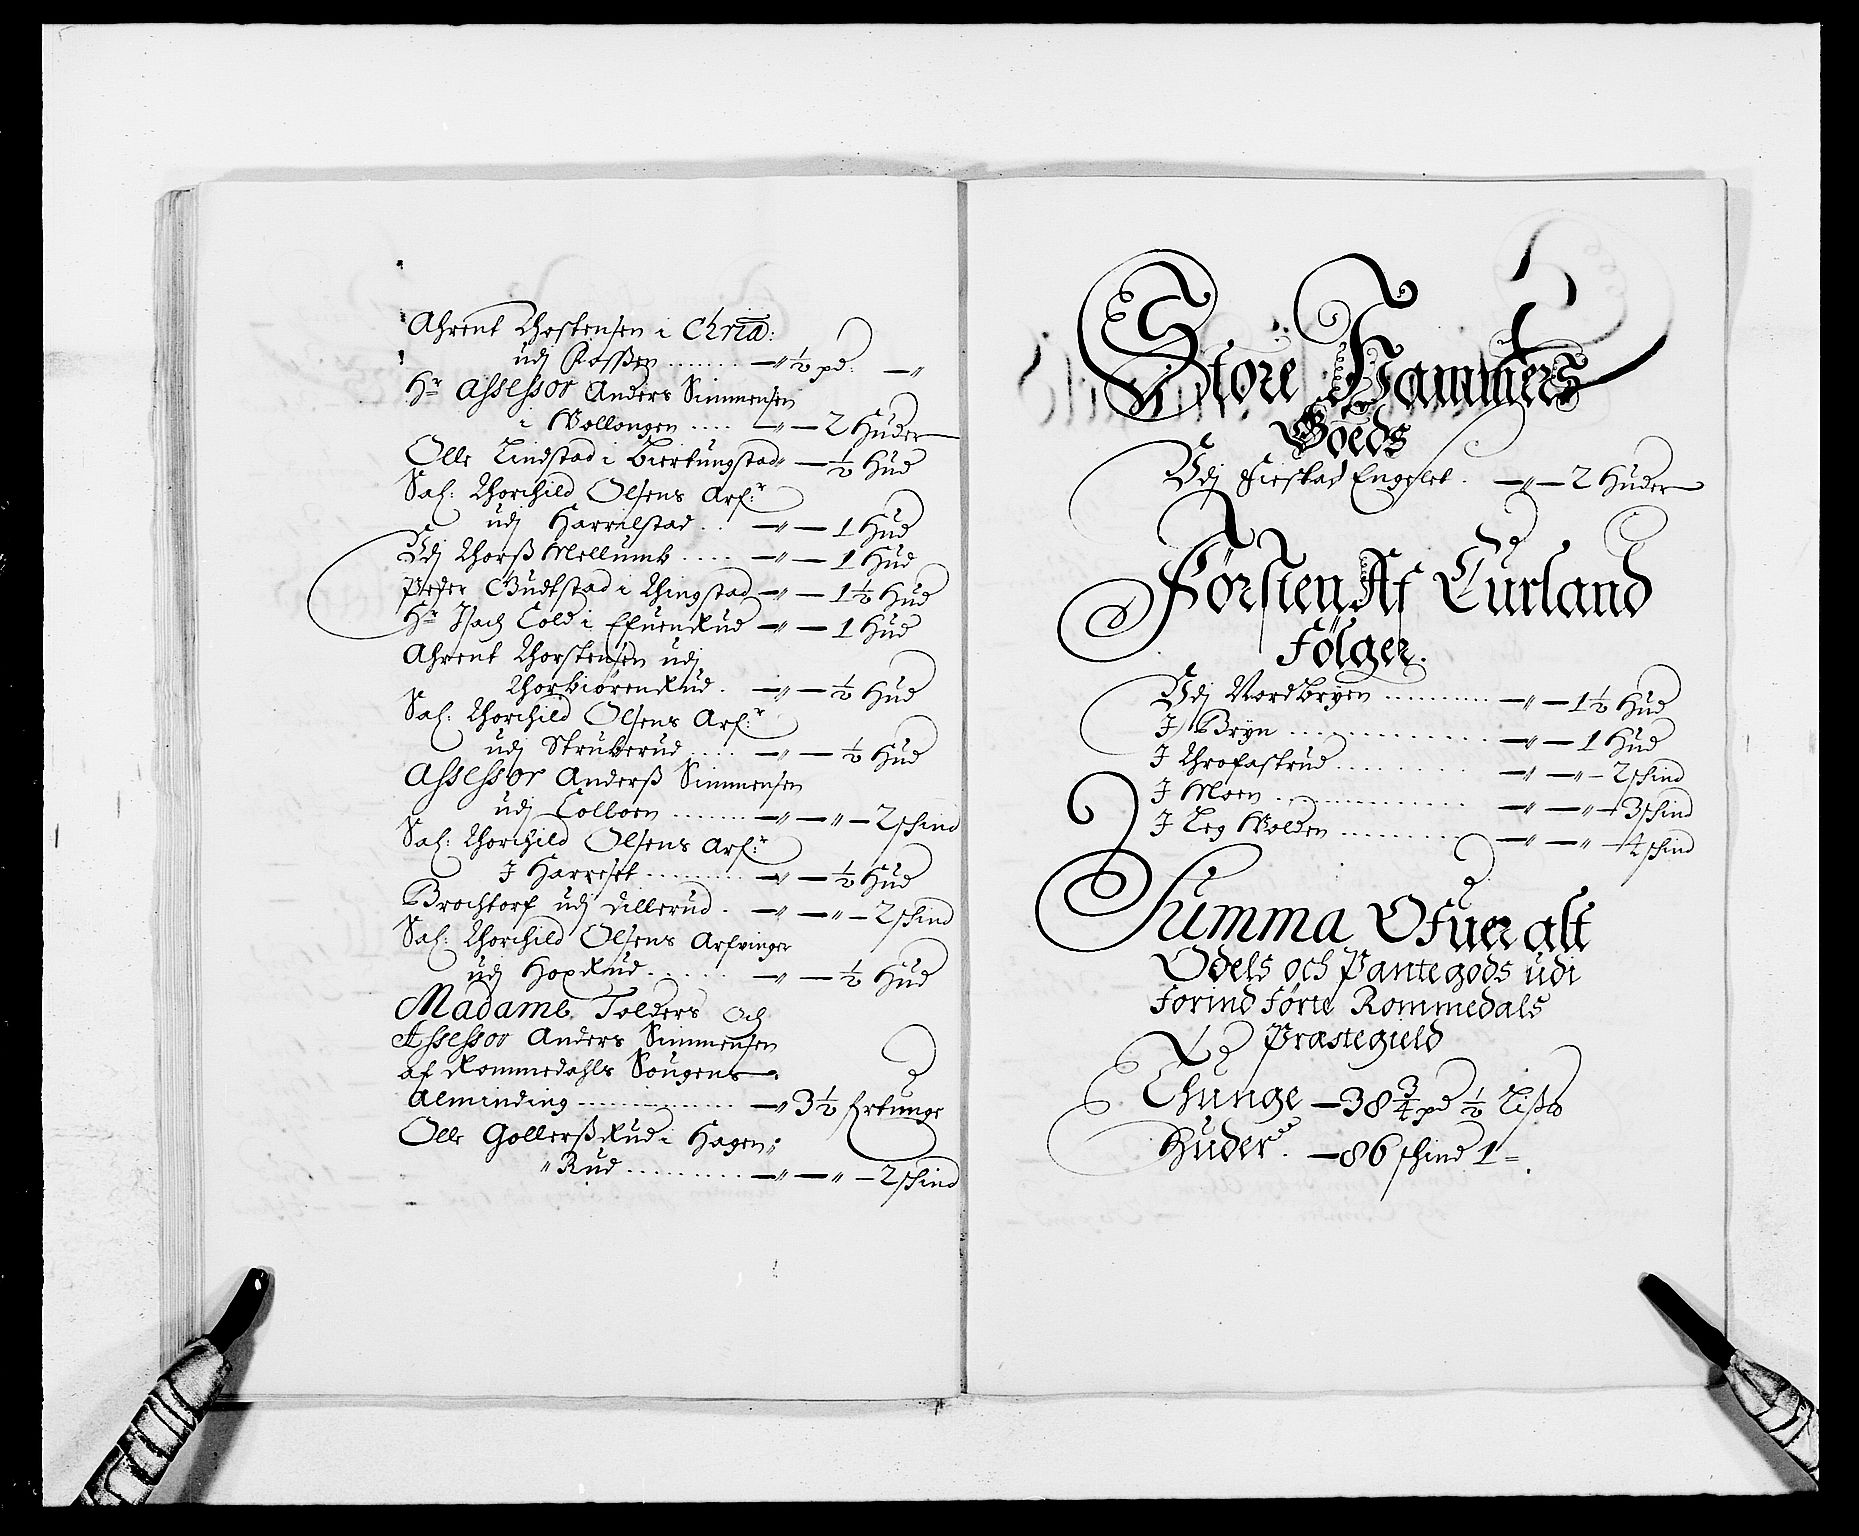 Ahrent Thorstensen i Chria:
udj Rossen ....... —„ ½ pd: —„
Hr Assessor Anders Simmensen
i Wollongen .... —„— 2 Huder
Olle Lindstad i Biertungstad „— ½ Hud
Sal: Thorchild Olsens Arf:r
udj Harrilstad .. —„— 1 Hud
Udj Thorß Mellumb .... —„— 1 Hud
Peder Gudtstad i Thingstad —„— 1½ Hud
Hr Isach Cold i Efuenrud —„— 1 Hud
Ahrent Thorstensen udj
Thorbiörenrud . —„— ½ Hud
Sal: Thorchild Olsens Arf:r
udj Struberud .... —„— ½ Hud
Assessor Anderß Simmensen
udj Colboen ....... —„—„— 2 schind
Sal: Thorchild Olsens Arf:r
I Harreset ......... —„— ½ Hud
Brochtorf udj Lillerud . —„—„— 2 schind
Sal: Thorchild Olsens Arfvinger
udj Hoprud ...... —„— ½ Hud
Madame Tolders och
Assessor Anders Simmensen
af Rommedahls Songens
Alminding ............... —„ 3½ Fertunge
Olle Gollerßrud i Hagen„
„Rud ......... —„—„— 2 schind
Store Hammers
Goeds
Udj Fiestad Engelet . —„— 2 Huder
Försten Af Curland
Fölger.
Udj Nordbryen .......... —„— 1½ Hud
I Bryn ............. —„— 1 Hud
I Throfastrud .......... —„—„— 2 schind
I Moen .............. —„—„— 3 schind
I Leg Wolden .......... —„—„— 4 schind
Summa Ofuer alt
Odels och Pantegods udi
Forind Förte Rommedals
Præstegield
Thunge — 38 ¾ pd ½ Lißb
Huder . — 86 schind 1 =